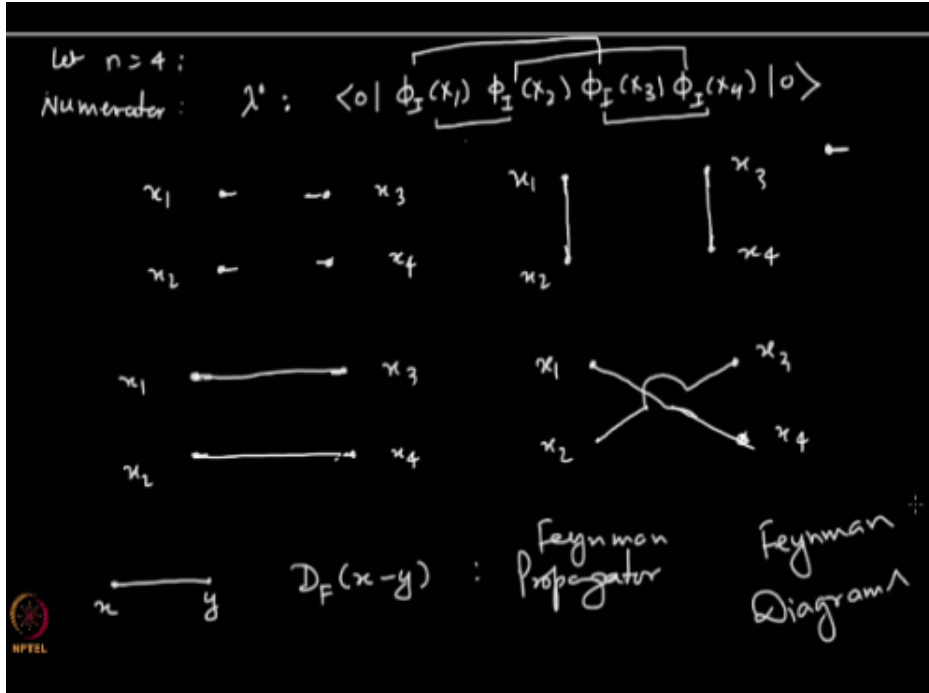 Let n = 4 :
Numerator : λ⁰ : <0| ϕ_I(x₁) ϕ_I(x₂) ϕ_I(x₃) ϕ_I(x₄) |0>
x₁ x₃ x₁ x₃
x₂ x₄ x₂ x₄
x₁ x₃ x₁ x₃
x₂ x₄ x₂ x₄
x y D_F(x-y) : Feynman Propagator
Feynman Diagrams
NPTEL